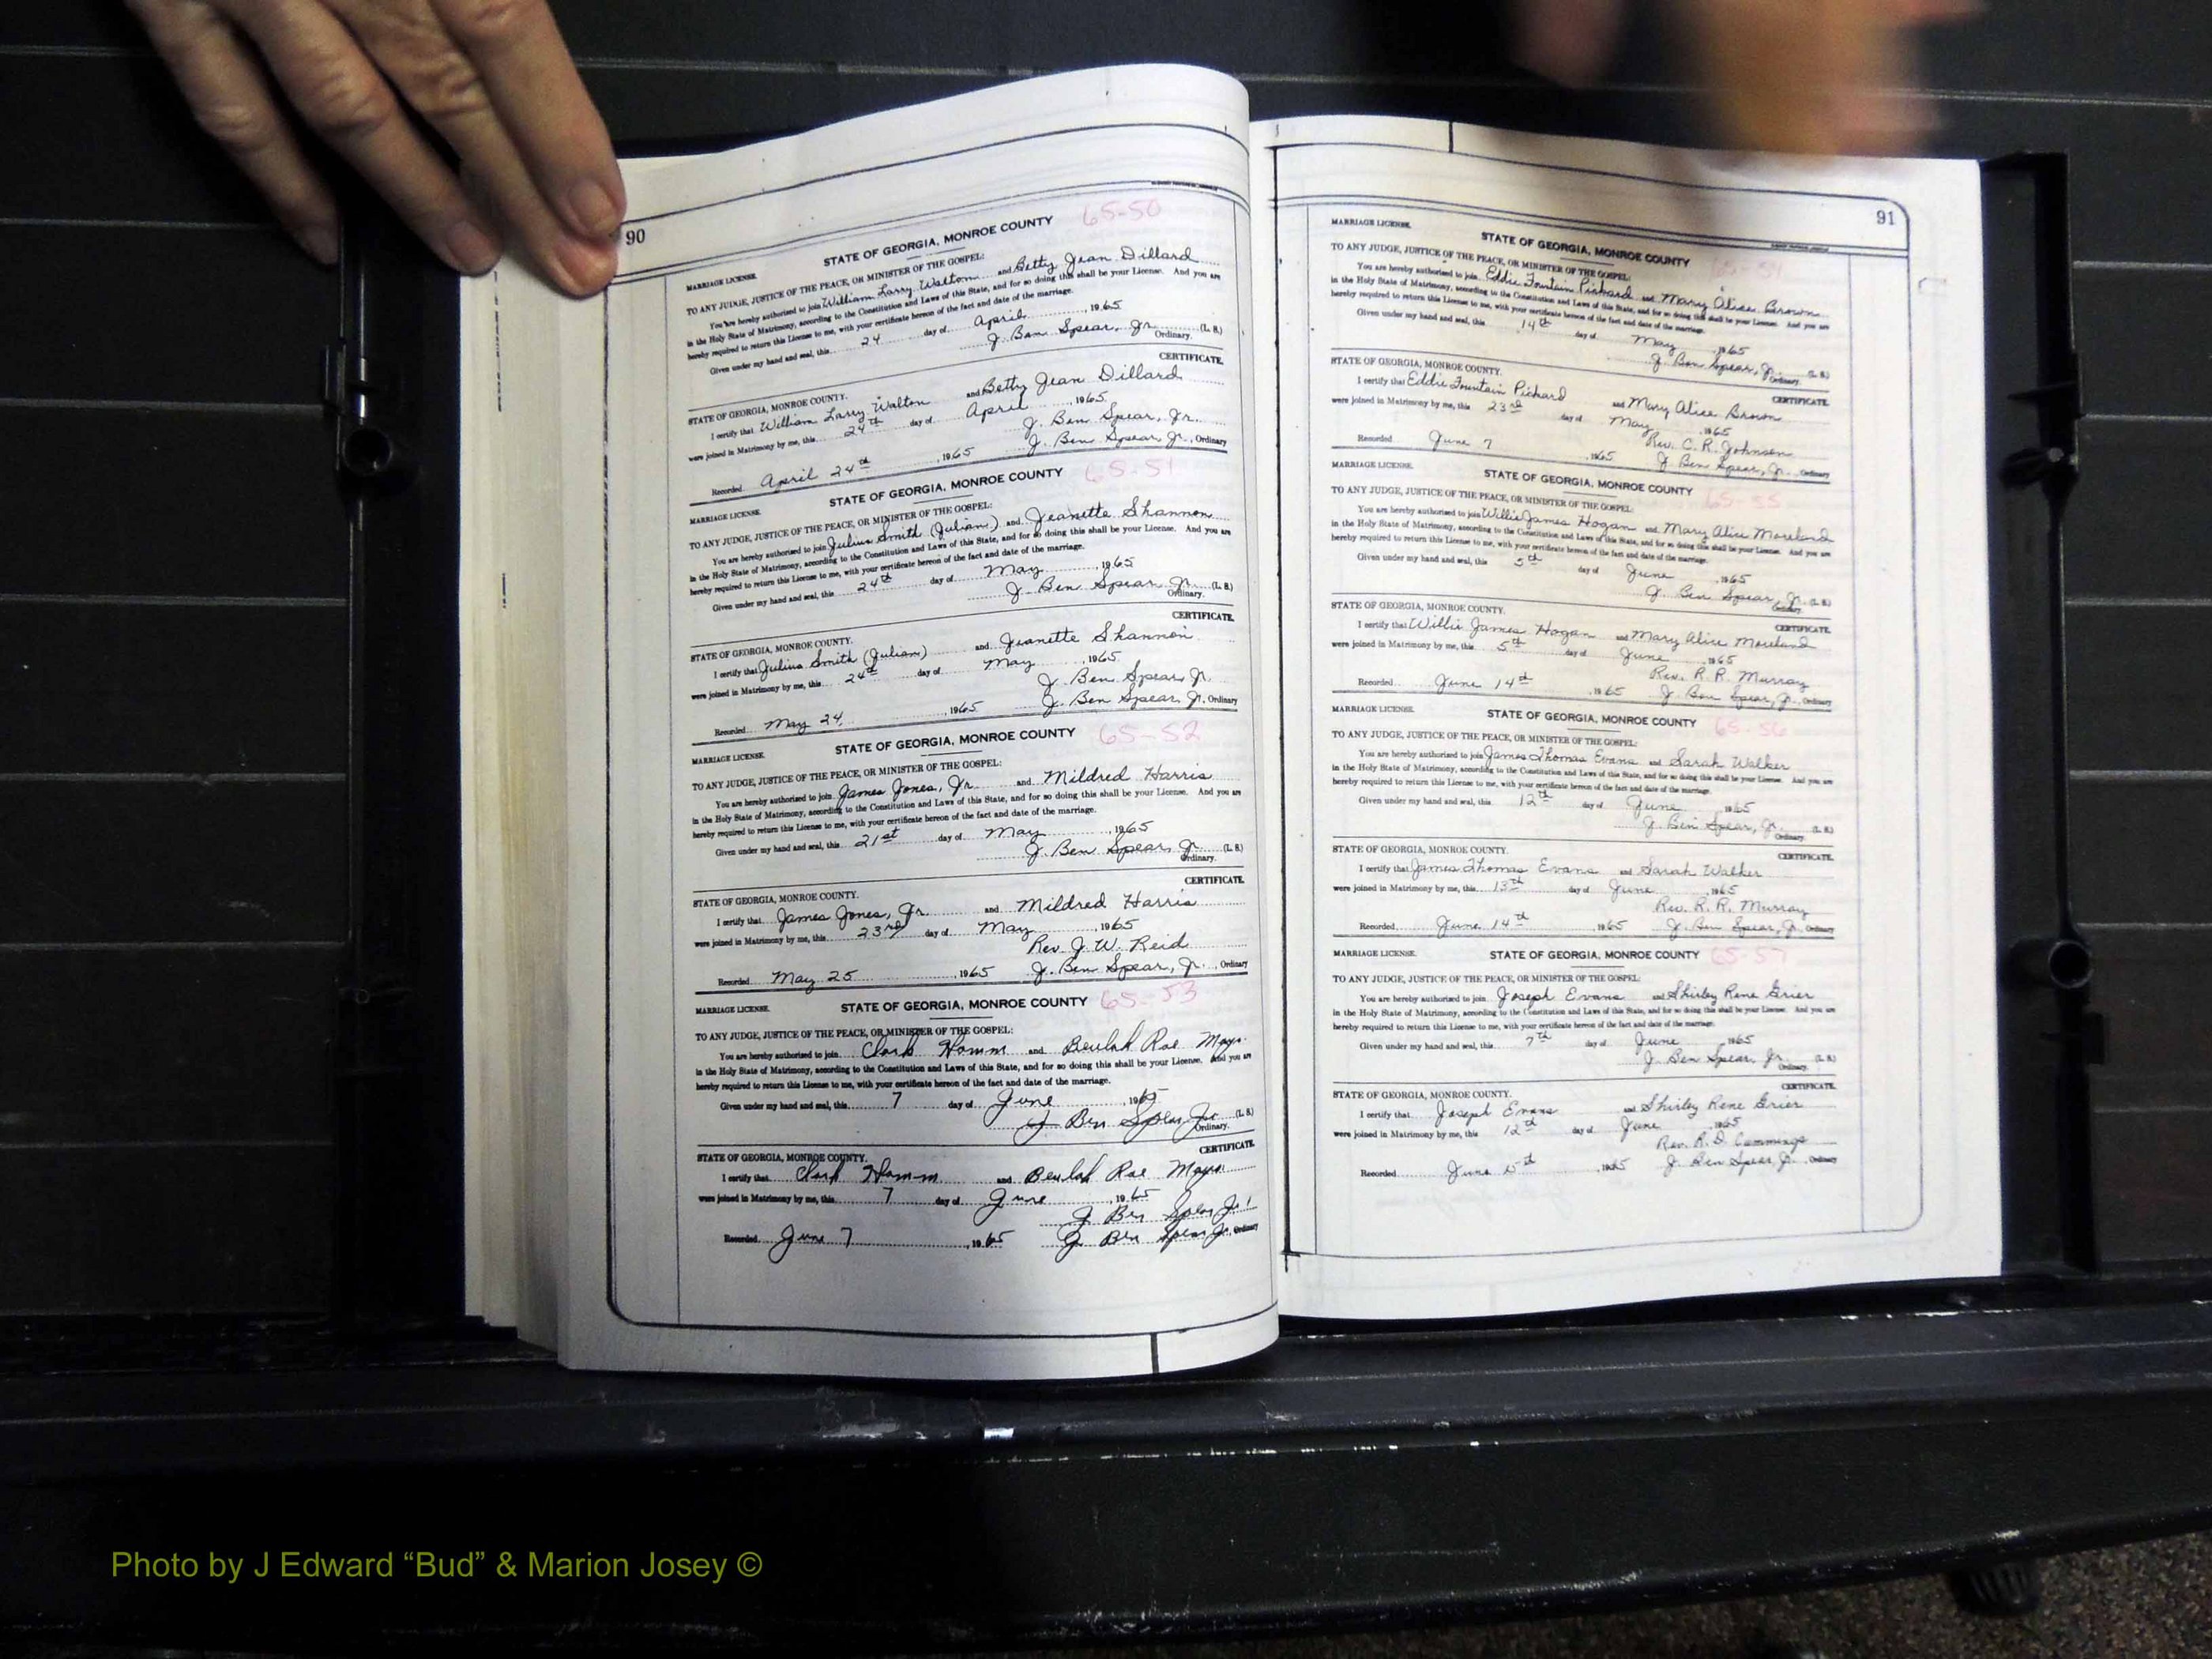 90
65-50
STATE OF GEORGIA, MONROE COUNTY
MARRIAGE LICENSE.
TO ANY JUDGE, JUSTICE OF THE PEACE, OR MINISTER OF THE GOSPEL:
You are hereby authorized to join William Larry Walton and Betty Jean Dillard
in the Holy State of Matrimony, according to the Constitution and Laws of this State, and for so doing this shall be your License. And you are
hereby required to return this License to me, with your certificate hereon of the fact and date of the marriage.
Given under my hand and seal, this 24 day of April, 1965
J. Ben Spear, Jr. (L. S.)
Ordinary.
CERTIFICATE.
STATE OF GEORGIA, MONROE COUNTY.
I certify that William Larry Walton and Betty Jean Dillard
were joined in Matrimony by me, this 24th day of April, 1965
J. Ben Spear, Jr.
Recorded April 24th, 1965 J. Ben Spear Jr., Ordinary
65-51
STATE OF GEORGIA, MONROE COUNTY
MARRIAGE LICENSE.
TO ANY JUDGE, JUSTICE OF THE PEACE, OR MINISTER OF THE GOSPEL:
You are hereby authorized to join Julius Smith (Julian) and Jeanette Shannon
in the Holy State of Matrimony, according to the Constitution and Laws of this State, and for so doing this shall be your License. And you are
hereby required to return this License to me, with your certificate hereon of the fact and date of the marriage.
Given under my hand and seal, this 24th day of May, 1965
J. Ben Spear Jr. (L. S.)
Ordinary.
CERTIFICATE.
STATE OF GEORGIA, MONROE COUNTY.
I certify that Julius Smith (Julian) and Jeanette Shannon
were joined in Matrimony by me, this 24th day of May, 1965
J. Ben Spear Jr.
Recorded May 24, 1965 J. Ben Spear, Jr., Ordinary
65-52
STATE OF GEORGIA, MONROE COUNTY
MARRIAGE LICENSE.
TO ANY JUDGE, JUSTICE OF THE PEACE, OR MINISTER OF THE GOSPEL:
You are hereby authorized to join James Jones, Jr. and Mildred Harris
in the Holy State of Matrimony, according to the Constitution and Laws of this State, and for so doing this shall be your License. And you are
hereby required to return this License to me, with your certificate hereon of the fact and date of the marriage.
Given under my hand and seal, this 21st day of May, 1965
J. Ben Spear, Jr. (L. S.)
Ordinary.
CERTIFICATE.
STATE OF GEORGIA, MONROE COUNTY.
I certify that James Jones, Jr. and Mildred Harris
were joined in Matrimony by me, this 23rd day of May, 1965
Rev. J. W. Reid
Recorded May 25, 1965 J. Ben Spear, Jr., Ordinary
65-53
MARRIAGE LICENSE. STATE OF GEORGIA, MONROE COUNTY
TO ANY JUDGE, JUSTICE OF THE PEACE, OR MINISTER OF THE GOSPEL:
You are hereby authorized to join Clark Hamm and Beulah Rae Mays
in the Holy State of Matrimony, according to the Constitution and Laws of this State, and for so doing this shall be your License. And you are
hereby required to return this License to me, with your certificate hereon of the fact and date of the marriage.
Given under my hand and seal, this 7 day of June, 1965
J Ben Spear Jr (L. S.)
Ordinary.
CERTIFICATE.
STATE OF GEORGIA, MONROE COUNTY.
I certify that Clark Hamm and Beulah Rae Mays
were joined in Matrimony by me, this 7 day of June, 1965
J Ben Spear Jr
Recorded June 7, 1965 J Ben Spear Jr. Ordinary
91
MARRIAGE LICENSE.
STATE OF GEORGIA, MONROE COUNTY
TO ANY JUDGE, JUSTICE OF THE PEACE, OR MINISTER OF THE GOSPEL:
You are hereby authorized to join Eddie Fountain Pickard and Mary Alice Brown
in the Holy State of Matrimony, according to the Constitution and Laws of this State, and for so doing this shall be your License. And you are
hereby required to return this License to me, with your certificate hereon of the fact and date of the marriage.
Given under my hand and seal, this 14th day of May 1965
J. Ben Spear, Jr. (L. S.)
Ordinary.
CERTIFICATE.
STATE OF GEORGIA, MONROE COUNTY.
I certify that Eddie Fountain Pickard and Mary Alice Brown
were joined in Matrimony by me, this 23rd day of May, 1965
Rev. C. R. Johnson
Recorded June 7, 1965 J. Ben Spear, Jr. Ordinary
MARRIAGE LICENSE.
STATE OF GEORGIA, MONROE COUNTY
65-55
TO ANY JUDGE, JUSTICE OF THE PEACE, OR MINISTER OF THE GOSPEL:
You are hereby authorized to join Willie James Hogan and Mary Alice Moreland
in the Holy State of Matrimony, according to the Constitution and Laws of this State, and for so doing this shall be your License. And you are
hereby required to return this License to me, with your certificate hereon of the fact and date of the marriage.
Given under my hand and seal, this 5th day of June, 1965
J. Ben Spear, Jr. (L. S.)
Ordinary.
CERTIFICATE.
STATE OF GEORGIA, MONROE COUNTY.
I certify that Willie James Hogan and Mary Alice Moreland
were joined in Matrimony by me, this 5th day of June, 1965
Rev. R. R. Murray
Recorded June 14th, 1965 J. Ben Spear, Jr., Ordinary
MARRIAGE LICENSE.
STATE OF GEORGIA, MONROE COUNTY
65-56
TO ANY JUDGE, JUSTICE OF THE PEACE, OR MINISTER OF THE GOSPEL:
You are hereby authorized to join James Thomas Evans and Sarah Walker
in the Holy State of Matrimony, according to the Constitution and Laws of this State, and for so doing this shall be your License. And you are
hereby required to return this License to me, with your certificate hereon of the fact and date of the marriage.
Given under my hand and seal, this 12th day of June, 1965
J. Ben Spear, Jr. (L. S.)
Ordinary.
CERTIFICATE.
STATE OF GEORGIA, MONROE COUNTY.
I certify that James Thomas Evans and Sarah Walker
were joined in Matrimony by me, this 13th day of June, 1965
Rev. R. R. Murray
Recorded June 14th, 1965 J. Ben Spear, Jr. Ordinary
MARRIAGE LICENSE. STATE OF GEORGIA, MONROE COUNTY
65-57
TO ANY JUDGE, JUSTICE OF THE PEACE, OR MINISTER OF THE GOSPEL:
You are hereby authorized to join Joseph Evans and Shirley Rene Grier
in the Holy State of Matrimony, according to the Constitution and Laws of this State, and for so doing this shall be your License. And you are
hereby required to return this License to me, with your certificate hereon of the fact and date of the marriage.
Given under my hand and seal, this 7th day of June, 1965
J. Ben Spear, Jr. (L. S.)
Ordinary.
CERTIFICATE.
STATE OF GEORGIA, MONROE COUNTY.
I certify that Joseph Evans and Shirley Rene Grier
were joined in Matrimony by me, this 12th day of June, 1965
Rev. R. D. Cummings
Recorded June, 1965 J. Ben Spear, Jr., Ordinary
Photo by J Edward “Bud” & Marion Josey ©